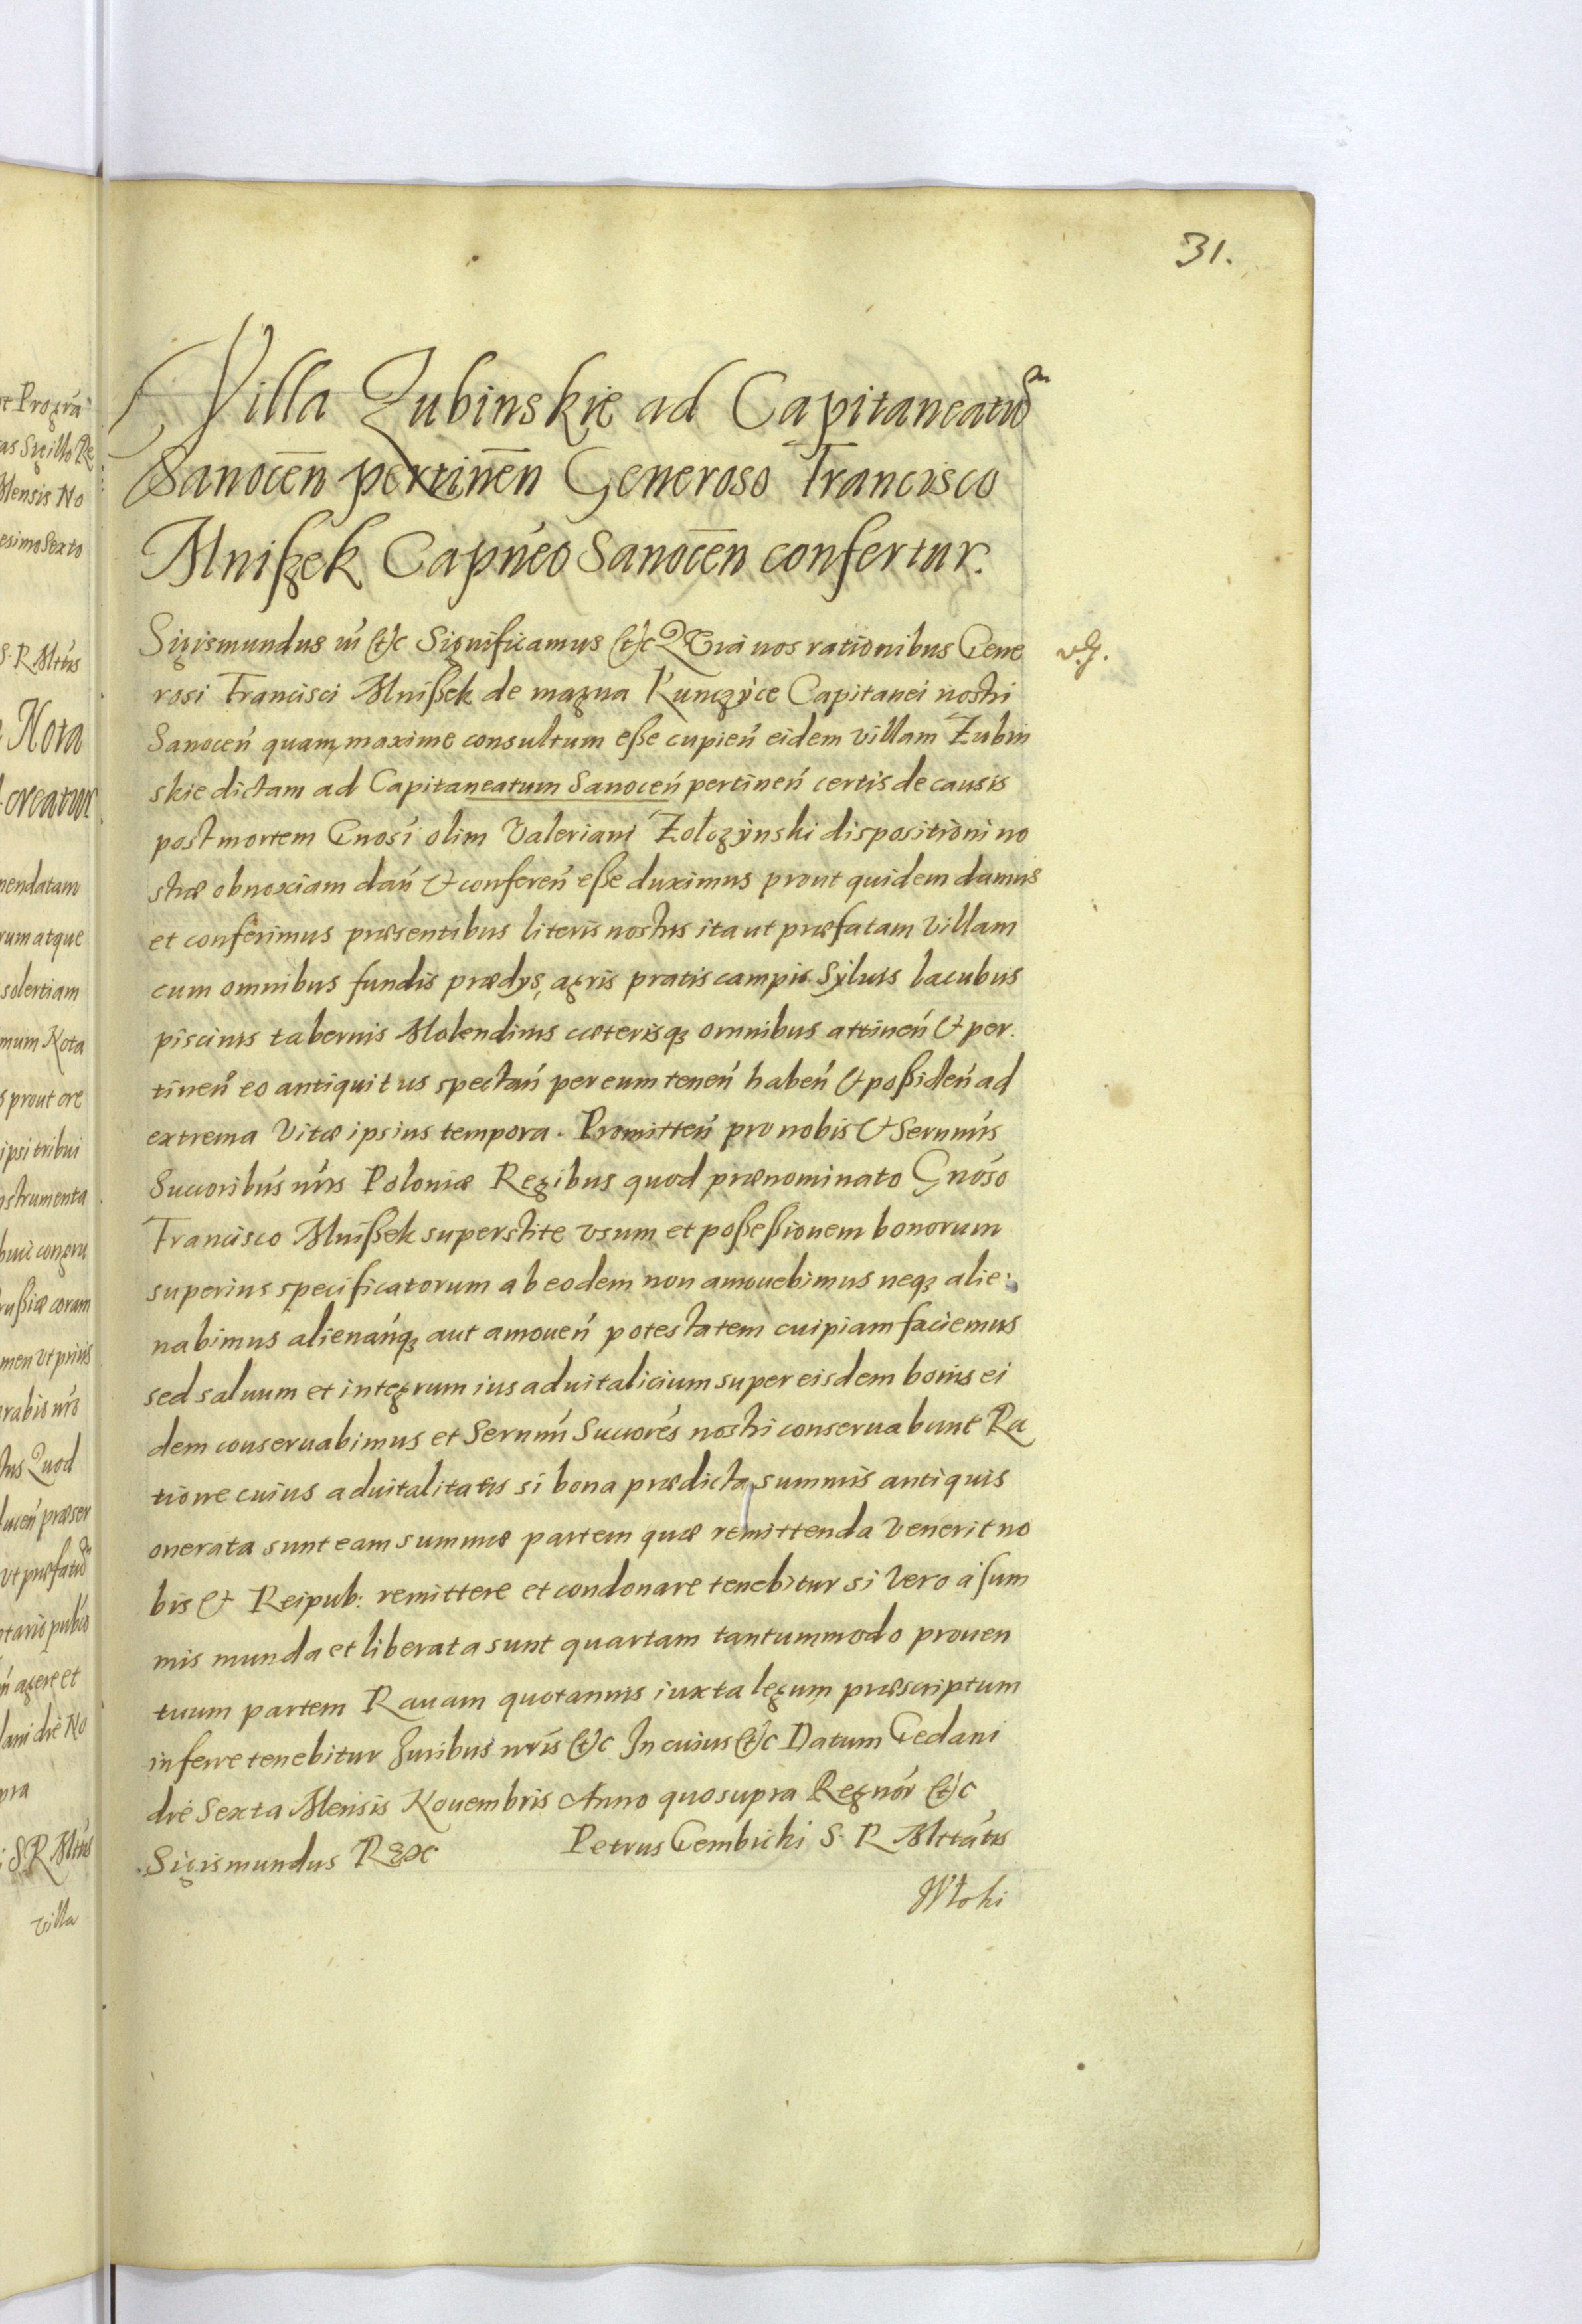 31.
Villa Zubinskie ad Capitaneatũ
Sanoceñ pertineñ Generoso Francisco
Mnißek Capneo Sanoceñ confertur.
Sigismundus &c Significamus &c Quia nos rationibus Gene
rosi Francisci Mnißek de magna Kunczyce Capitanei nostri
Sanoceń quam maxime consultum eße cupień eidem villam Zubin
skie dictam ad Capitaneatum Sanoceń pertineń certis de causis
post mortem Gnosi olim Valeriani Żołczynski dispositioni no
stræ obnoxiam dań & confereń eße duximus prout quidem damus
et conferimus præsentibus literis nostris ita ut præfatam villam
cum omnibus fundis prædys, agris pratis campis Syluis lacubus
piscinis tabernis Molendinis cæterisq; omnibus attineń & per.
tineń eo antiquitus spectań per eum teneń habeń & poßideń ad
extrema vitæ ipsius tempora. Promitteń pro nobis & Sernmis
Succoribus nris Poloniæ Regibus quod prænominato Gnoso
Francisco Mnißek superstite vsum et poßeßionem bonorum
superius specificatorum ab eodem non amouebimus neq; alie:
nabimus alienańq; aut amoueń potestatem cuipiam faciemus
sed saluum et integrum ius aduitalicium super eisdem bonis ei
dem conseruabimus et Sernmi Succores nostri conseruabunt Ra
tione cuius aduitalitatis si bona prædicta summis antiquis
onerata sunt eam summæ partem quæ remittenda venerit no
bis & Reipub: remittere et condonare tenebitur si vero à sum
mis munda et liberata sunt quartam tantummodo prouen
tuum partem Rauam quotannis iuxta legum præscriptum
inferre tenebitur Iuribus nris &c In cuius &c Datum Gedani
die Sexta Mensis Nouembris Anno quo supra Regnor &c
Sigismundus Rex Petrus Gembicki S. R Mttatis
Włoki